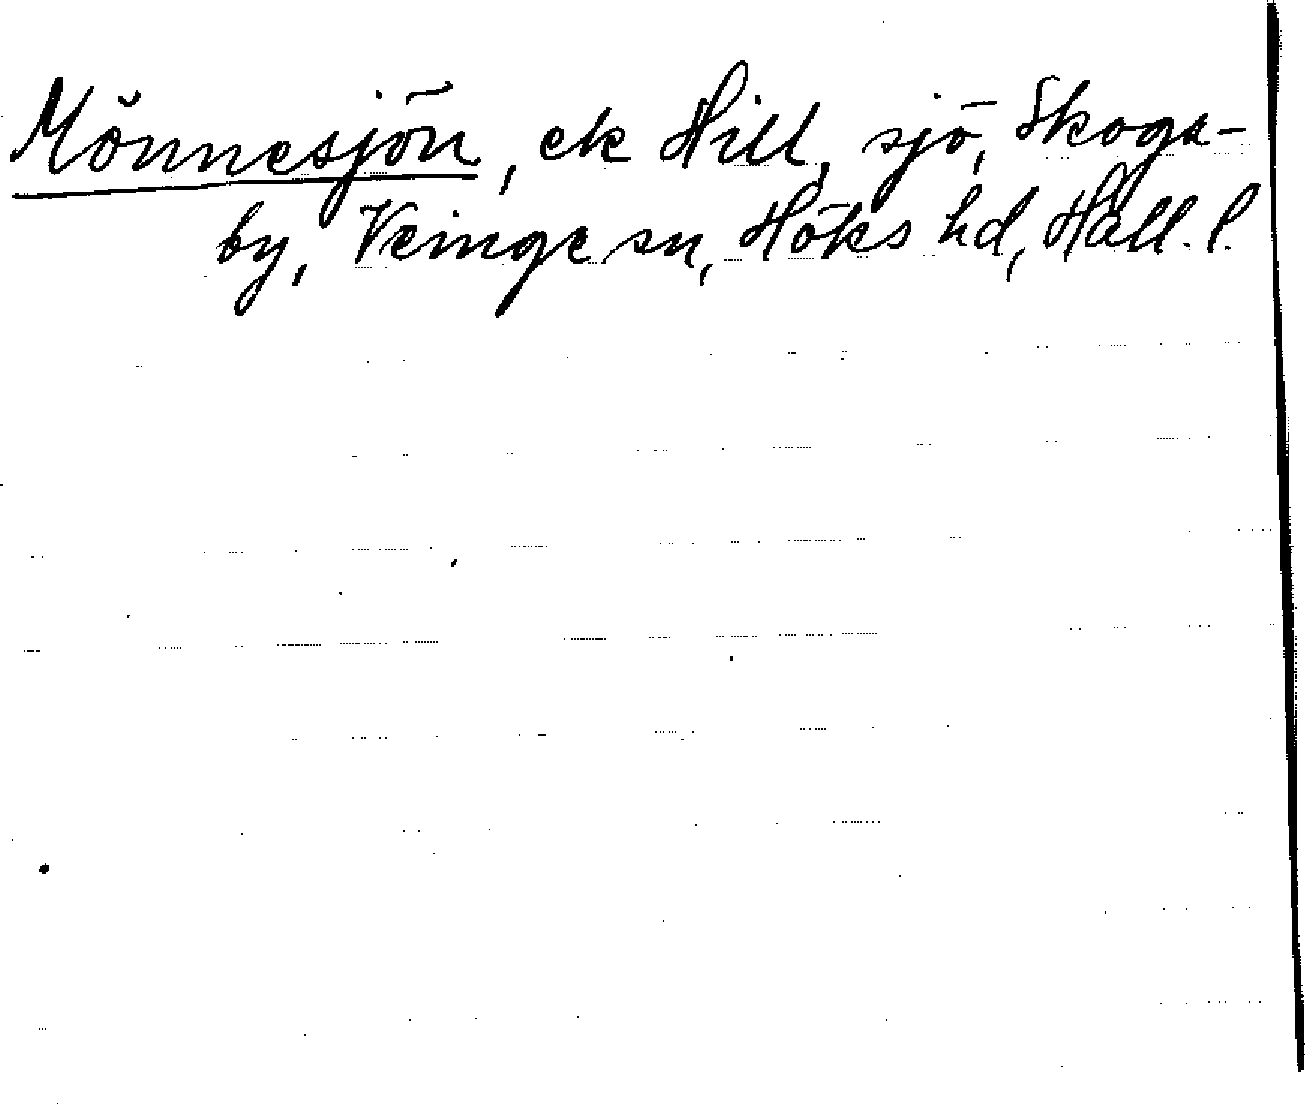 Mönnesjön, ek Hill, sjö, Skoga-
by, Veinge sn, Höks hd, Hall. l.